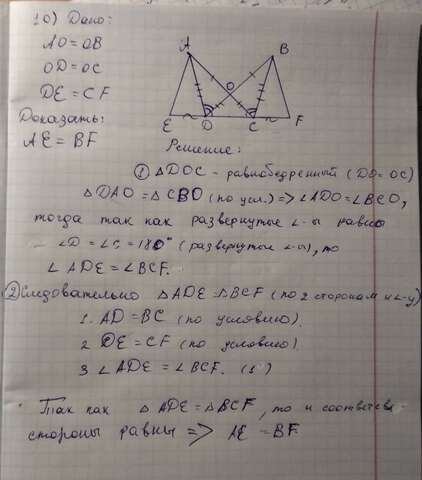 10) Дано:
AO = OB
OD = OC
DE = CF
Доказать:
AE = BF
A
B
O
E
D
C
F
Решение:
① △DOC - равнобедренный (DO = OC)
△DAO = △CBO (по усл.) => ∠ADO = ∠BCO,
тогда так как развернутые ∠-ы равны
∠D = ∠C = 180° (развернутые ∠-ы), то
∠ADE = ∠BCF.
② Следовательно △ADE = △BCF (по 2 сторонам и ∠-у)
1. AD = BC (по условию).
2 DE = CF (по условию)
3 ∠ADE = ∠BCF.
Так как △ADE = △BCF, то и соответств
стороны равны => AE = BF.